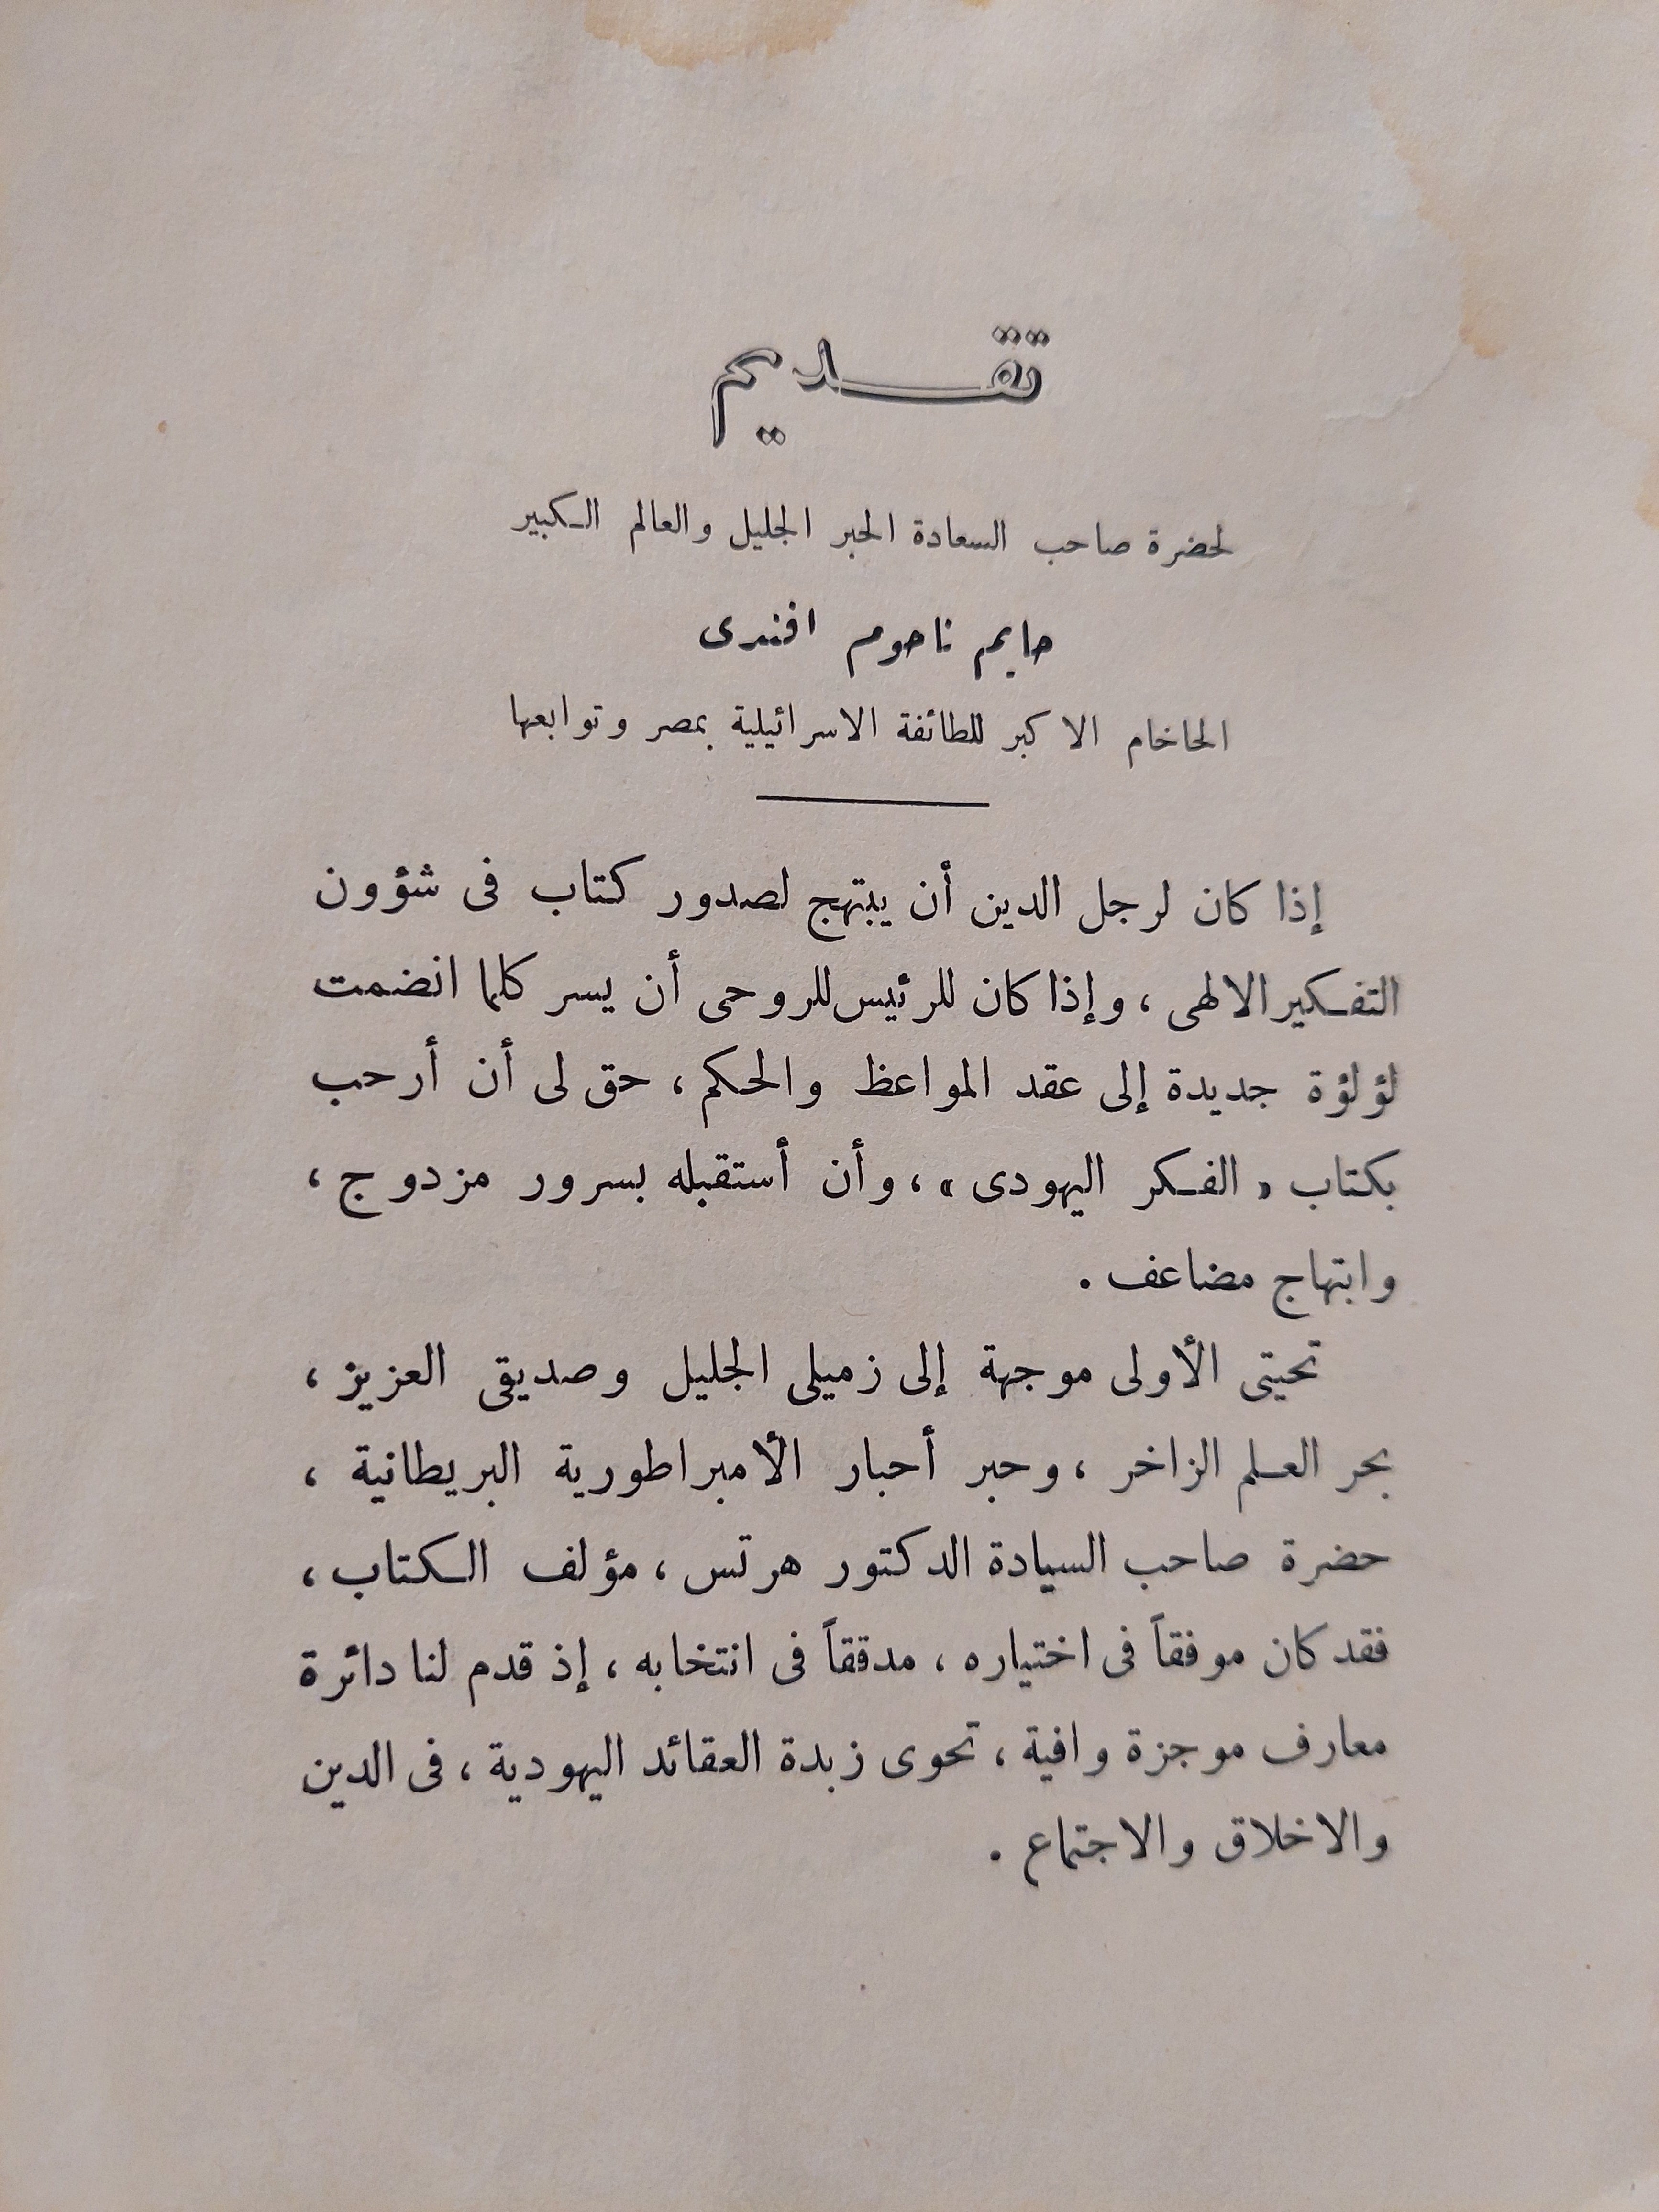 تقديم
لحضرة صاحب السعادة الحبر الجليل والعالم الكبير
حايم ناحوم افندى
الحاخام الاكبر للطائفة الاسرائيلية بمصر وتوابعها
إذا كان لرجل الدين أن يبتهج لصدور كتاب فى شؤون
التفكير الالهى ، وإذا كان للرئيس للروحى أن يسر كلما انضمت
لؤلؤة جديدة إلى عقد المواعظ والحكم ، حق لى أن أرحب
بكتاب « الفكر اليهودى » ، وأن أستقبله بسرور مزدوج ،
وابتهاج مضاعف .
تحيتى الأولى موجهة إلى زميلى الجليل وصديقى العزيز ،
بحر العلم الزاخر ، وحبر أحبار الأمبراطورية البريطانية ،
حضرة صاحب السيادة الدكتور هرتس ، مؤلف الكتاب ،
فقد كان موفقاً فى اختياره ، مدققاً فى انتخابه ، إذ قدم لنا دائرة
معارف موجزة وافية ، تحوى زبدة العقائد اليهودية ، فى الدين
والاخلاق والاجتماع .